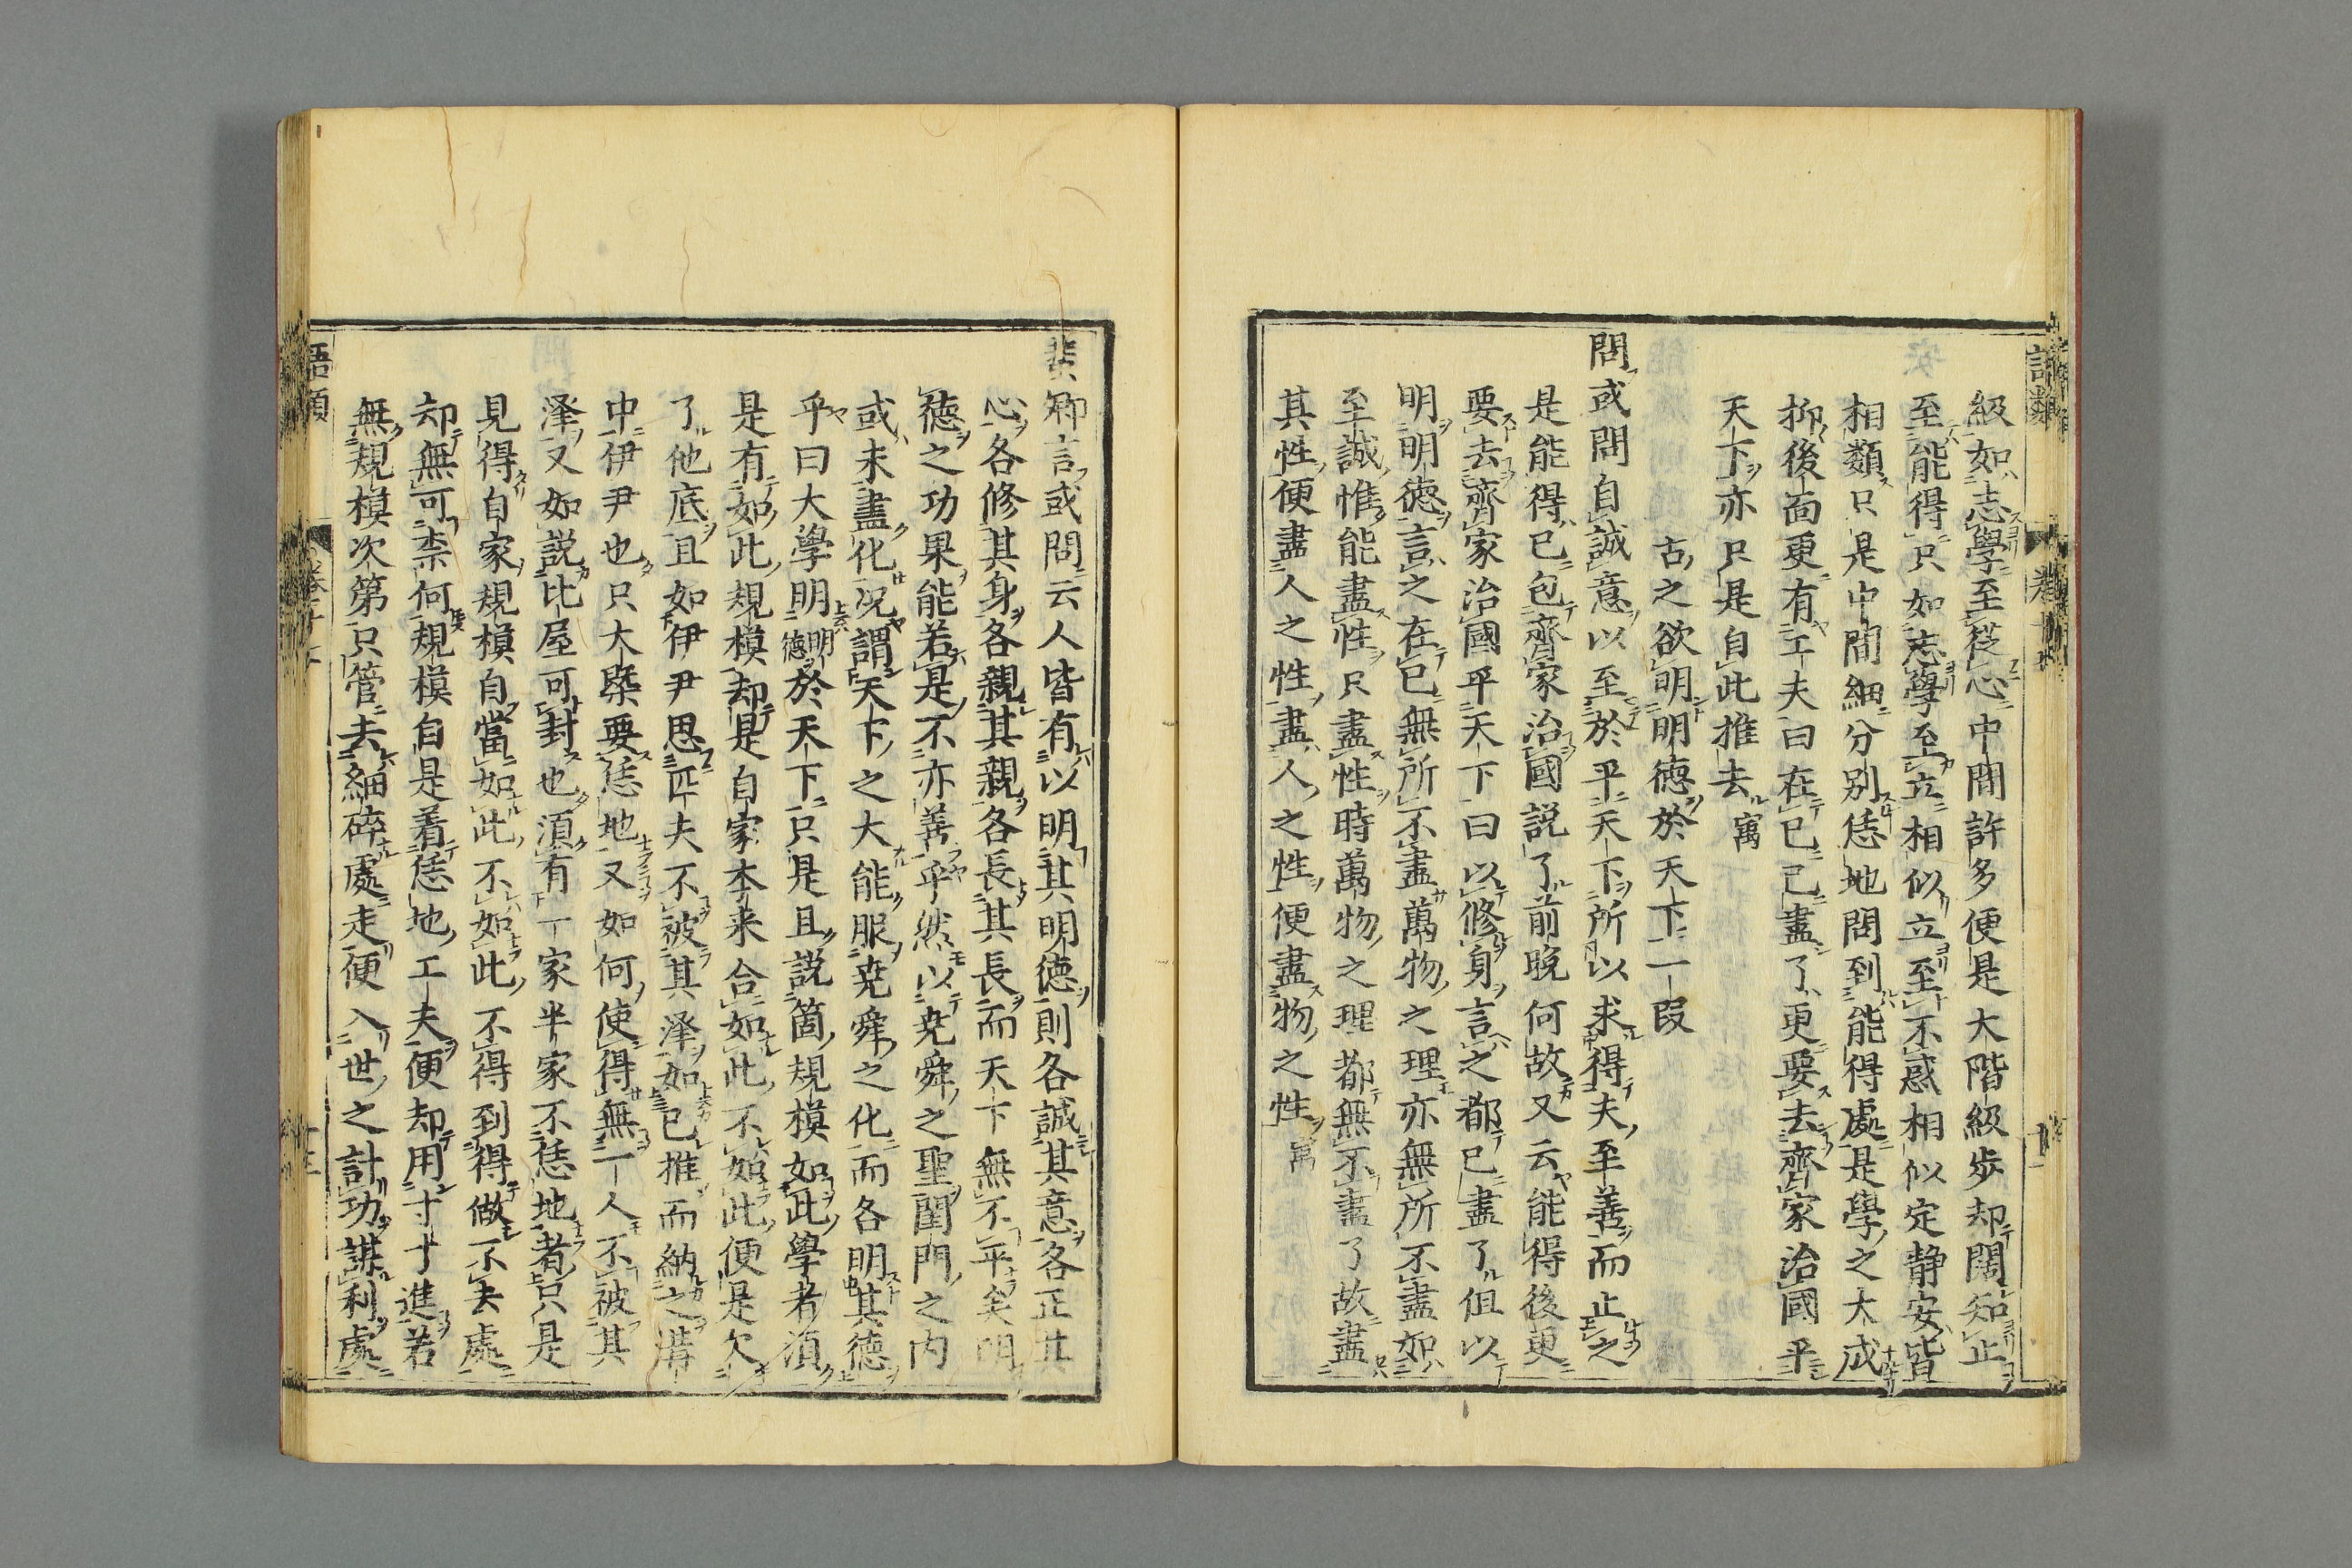 級如志學至從心中間許多便是大階級步却闊知止
至能得只如志學至立相似立至不惑相似定靜安皆
相類只是中間細分別恁地問到能得處是學之大成
抑後面更有工夫曰在己已盡了更要去齊家治國平
天下亦只是自此推去寓
古之欲明明德於天下一段
問或問自誠意以至於平天下所以求得夫至善而止之
是能得已包齊家治國說了前晚何故又云能得後更
要去齊家治國平天下曰以修身言之都已盡了但以
明明德言之在己無所不盡萬物之理亦無所不盡如
至誠惟能盡性只盡性時萬物之理都無不盡了故盡
其性便盡人之性盡人之性便盡物之性寓
蜚卿言或問云人皆有以明其明德則各誠其意各正其
心各修其身各親其親各長其長而天下無不平矣明
德之功果能若是不亦善乎然以堯舜之聖閨門之內
或未盡化況謂天下之大能服堯舜之化而各明其德
乎曰大學明明德於天下只是且說箇規模如此學者須
是有如此規模却是自家本来合如此不如此便是欠
了他底且如伊尹思匹夫不被其澤如己推而納之溝
中伊尹也只大槩要恁地又如何使得無一人不被其
澤又如說比屋可封也須有一家半家不恁地者只是
見得自家規模自當如此不如此不得到得做不去處
却無可柰何規模自是着恁地工夫便却用寸寸進若
無規模次第只管去細碎處走便入世之計功謀利處
語類